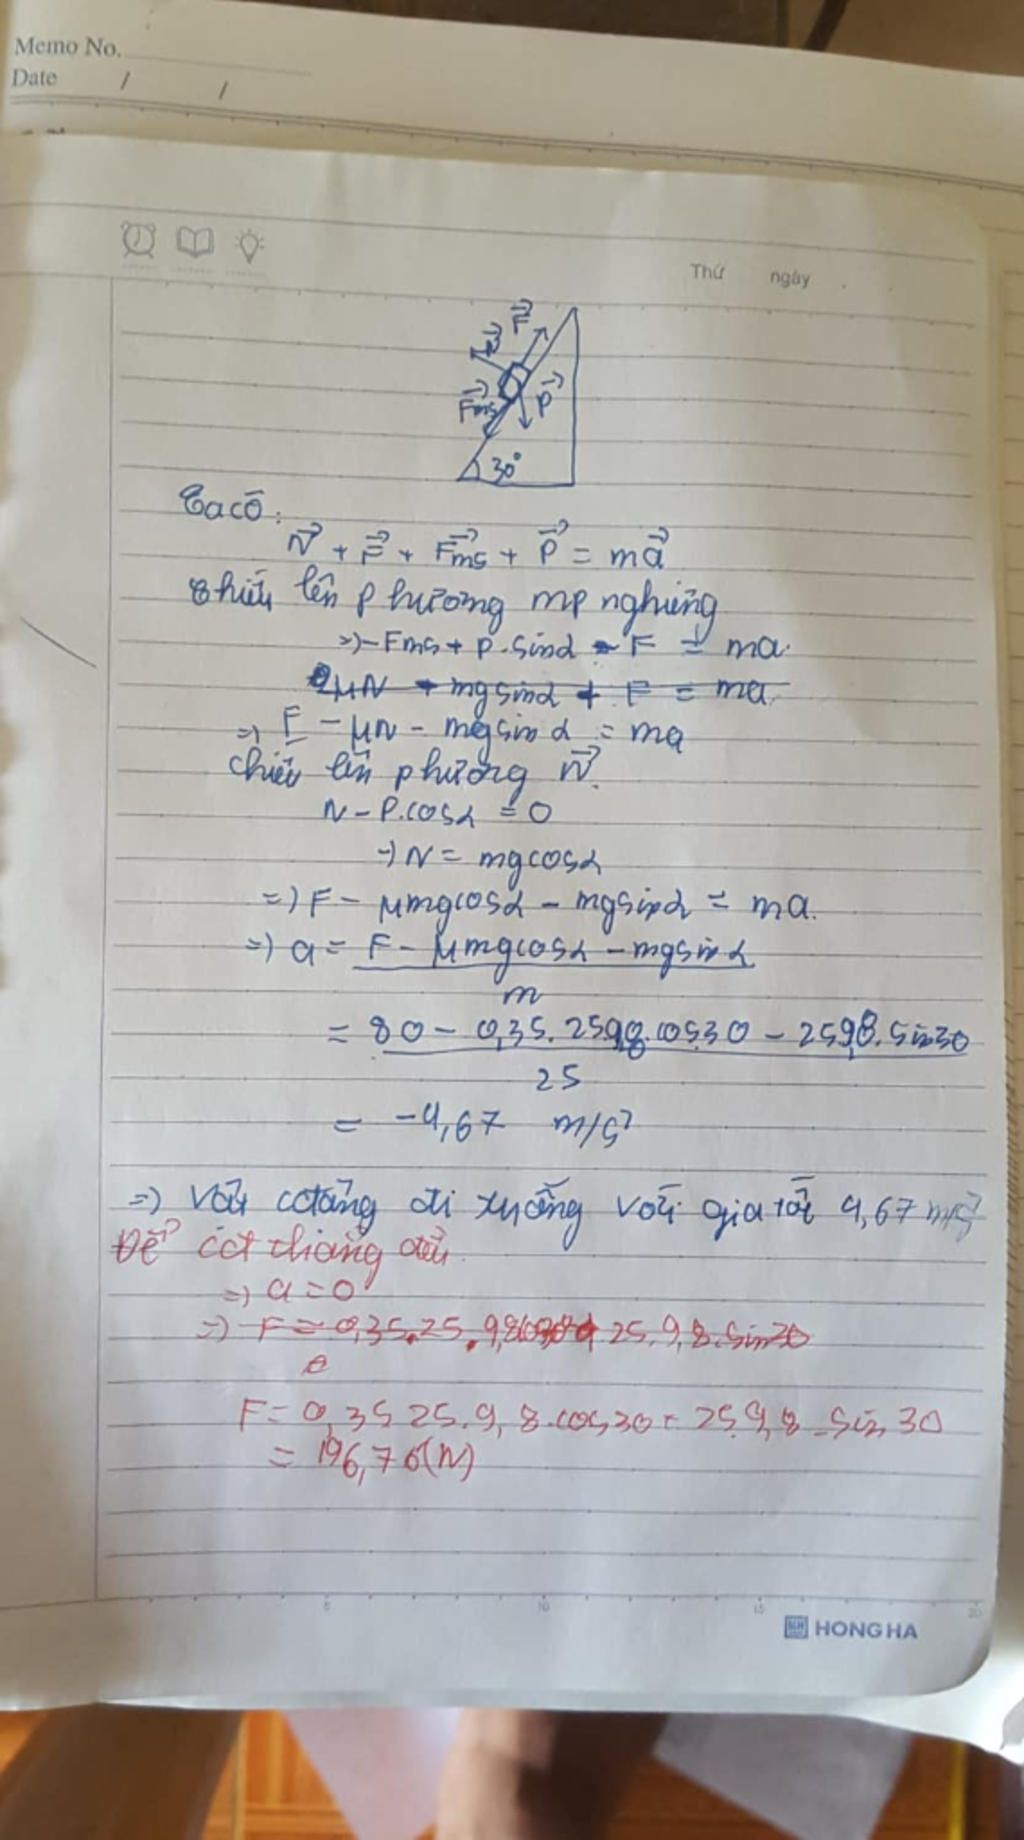 Memo No.
Date / /
Thứ ngày
F⃗
N⃗
F⃗ms
P⃗
30°
Ta có:
N⃗ + F⃗ + F⃗ms + P⃗ = ma⃗
Chiếu lên phương mp nghiêng
=> -Fms + P.sinα - F = ma.
μN + mgsinα + F = ma
=> F - μN - mgsinα = ma
chiếu lên phương N⃗.
N - P.cosα = 0
=> N = mgcosα
=> F - μmgcosα - mgsinα = ma.
=> a = F - μmgcosα - mgsinα
m
= 80 - 0,35.25.9,8.cos30 - 25.9,8.sin30
25
= -4,67 m/s²
=> Vật cđ đi xuống với gia tốc 4,67 m/s²
Để cđ thẳng đều.
=> a = 0
=> F = 0,35.25.9,8 25.9,8.sin30
F = 0,35 25.9,8.cos30 + 25.9,8.sin30
= 196,76(N)
5 10 15 20
HONG HA